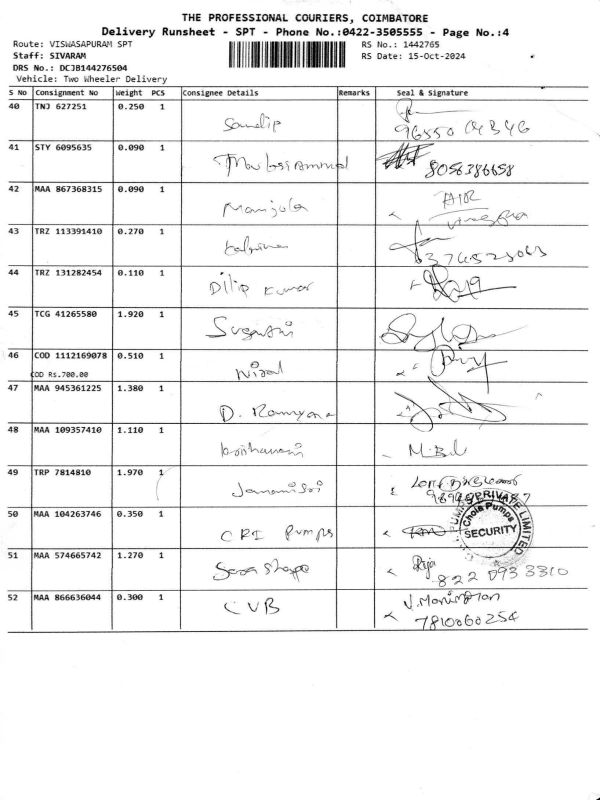 THE PROFESSIONAL COURIERS, COIMBATORE
Delivery Runsheet - SPT - Phone No.:0422-3505555 - Page No.:4
Route: VISWASAPURAM SPT
RS No.: 1442765
Staff: SIVARAM
RS Date: 15-Oct-2024
DRS No.: DCJB144276504
Vehicle: Two Wheeler Delivery
S No Consignment No Weight PCS Consignee Details Remarks Seal & Signature
40 TNJ 627251 0.250 1
Sandip
41 STY 6095635 0.090 1
8056386658
42 MAA 867368315 0.090 1
Manjula
43 TRZ 113391410 0.270 1
44 TRZ 131282454 0.110 1
Dilip Kumar
45 TCG 41265580 1.920 1
46 COD 1112169078 0.510 1
COD Rs.700.00
47 MAA 945361225 1.380 1
D. Ramyana
48 MAA 109357410 1.110 1
49 TRP 7814810 1.970 1
50 MAA 104263746 0.350 1
CRI Pumps
PUMPS PRIVATE LIMITED
Chola Pumps
SECURITY
51 MAA 574665742 1.270 1
822 093 3310
52 MAA 866636044 0.300 1
CVB
7810060254